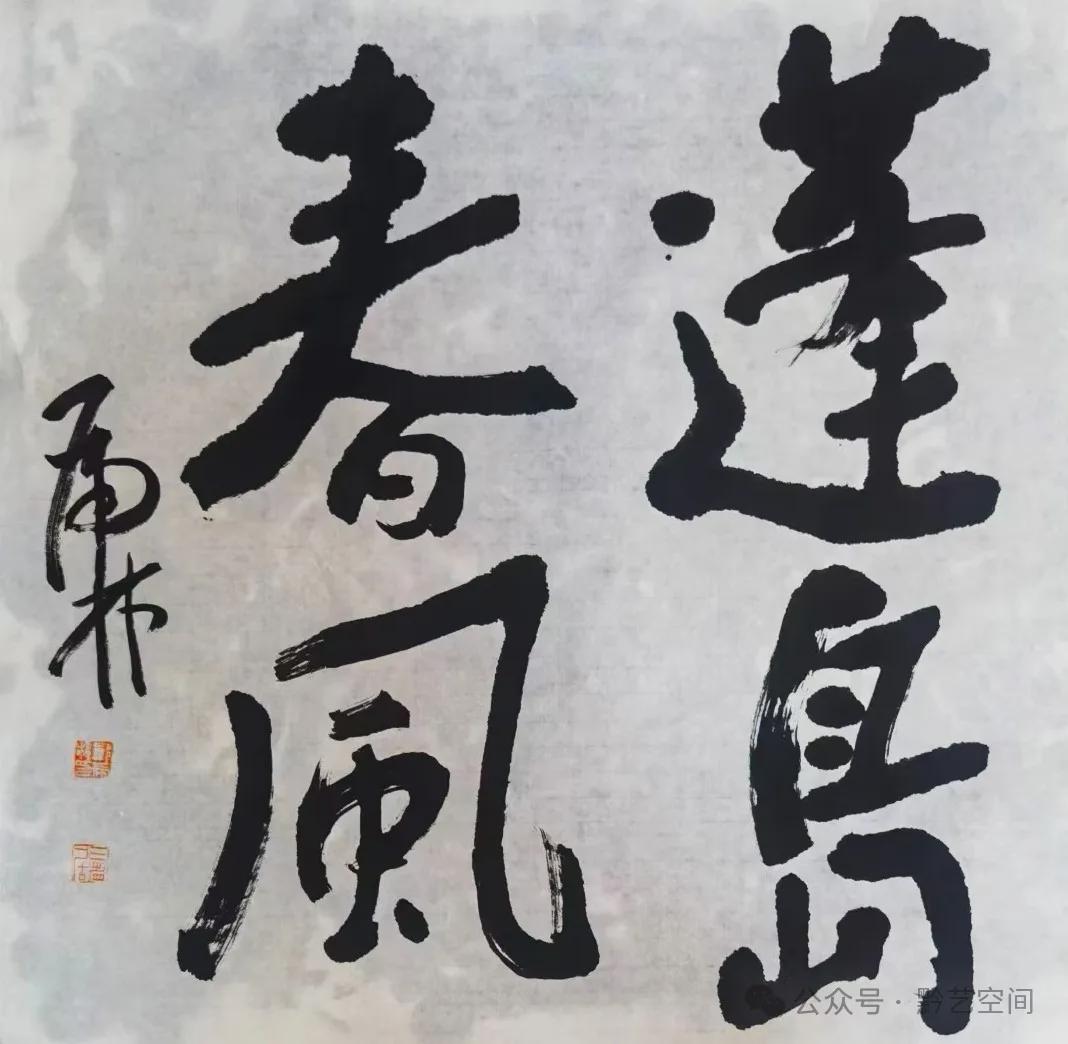 蓬島
春風
公众号 · 黔艺空间